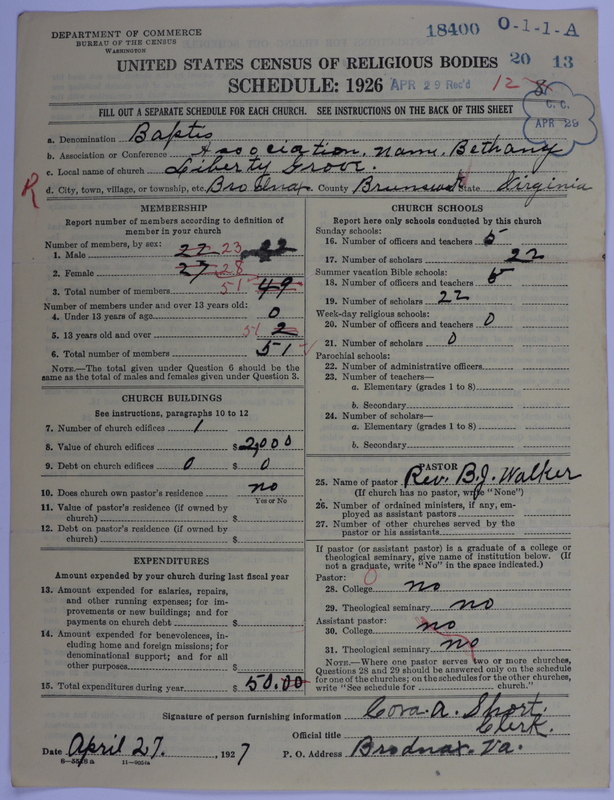 DEPARTMENT OF COMMERCE
BUREAU OF THE CENSUS
WASHINGTON
18400 O-1-1-A
UNITED STATES CENSUS OF RELIGIOUS BODIES 20 13
SCHEDULE: 1926 APR 29 Rec'd 12
FILL OUT A SEPARATE SCHEDULE FOR EACH CHURCH. SEE INSTRUCTIONS ON THE BACK OF THIS SHEET
C. C.
APR 29
a. Denomination Baptis
b. Association or Conference Association, name, Bethany
c. Local name of church Liberty Grove.
R d. City, town, village, or township, etc. Brodnax County Brunswick State Virginia
MEMBERSHIP
Report number of members according to definition of
member in your church
Number of members, by sex:
1. Male 22 23 22
2. Female 27 28
3. Total number of members 51 49
Number of members under and over 13 years old:
4. Under 13 years of age 0
5. 13 years old and over 51 2
6. Total number of members 51
NOTE.—The total given under Question 6 should be
same as the total of males and females given under Question 3.
CHURCH BUILDINGS
See instructions, paragraphs 10 to 12
7. Number of church edifices 1
8. Value of church edifices $ 2,000
9. Debt on church edifices 0 $ 0
10. Does church own pastor's residence no
Yes or No
11. Value of pastor's residence (if owned by
church) $
12. Debt on pastor's residence (if owned by
church) $
EXPENDITURES
Amount expended by your church during last fiscal year
13. Amount expended for salaries, repairs,
and other running expenses; for im-
provements or new buildings; and for
payments on church debt $
14. Amount expended for benevolences, in-
cluding home and foreign missions; for
denominational support; and for all
other purposes $
15. Total expenditures during year $ 50.00
CHURCH SCHOOLS
Report here only schools conducted by this church
Sunday schools:
16. Number of officers and teachers 5
17. Number of scholars 22
Summer vacation Bible schools:
18. Number of officers and teachers 5
19. Number of scholars 22
Week-day religious schools:
20. Number of officers and teachers 0
21. Number of scholars 0
Parochial schools:
22. Number of administrative officers
23. Number of teachers—
a. Elementary (grades 1 to 8)
b. Secondary
24. Number of scholars—
a. Elementary (grades 1 to 8)
b. Secondary
PASTOR
25. Name of pastor Rev. B.J. Walker
(If church has no pastor, write "None")
26. Number of ordained ministers, if any, em-
ployed as assistant pastors
27. Number of other churches served by the
pastor or his assistants
If pastor (or assistant pastor) is a graduate of a college or
theological seminary, give name of institution below. (If
not a graduate, write "No" in the space indicated.)
Pastor: 0
28. College no
29. Theological seminary no
Assistant pastor:
30. College no
31. Theological seminary no
NOTE.—Where one pastor serves two or more churches,
Questions 28 and 29 should be answered only on the schedule
for one of the churches; on the schedules for the other churches,
write "See schedule for church."
Signature of person furnishing information Cora. A. Short.
Official title Clerk.
Date April 27. 1927 P. O. Address Brodnax. Va.